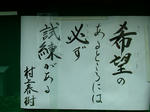 希望の
あるところには
必ず
試練がある
村上春樹